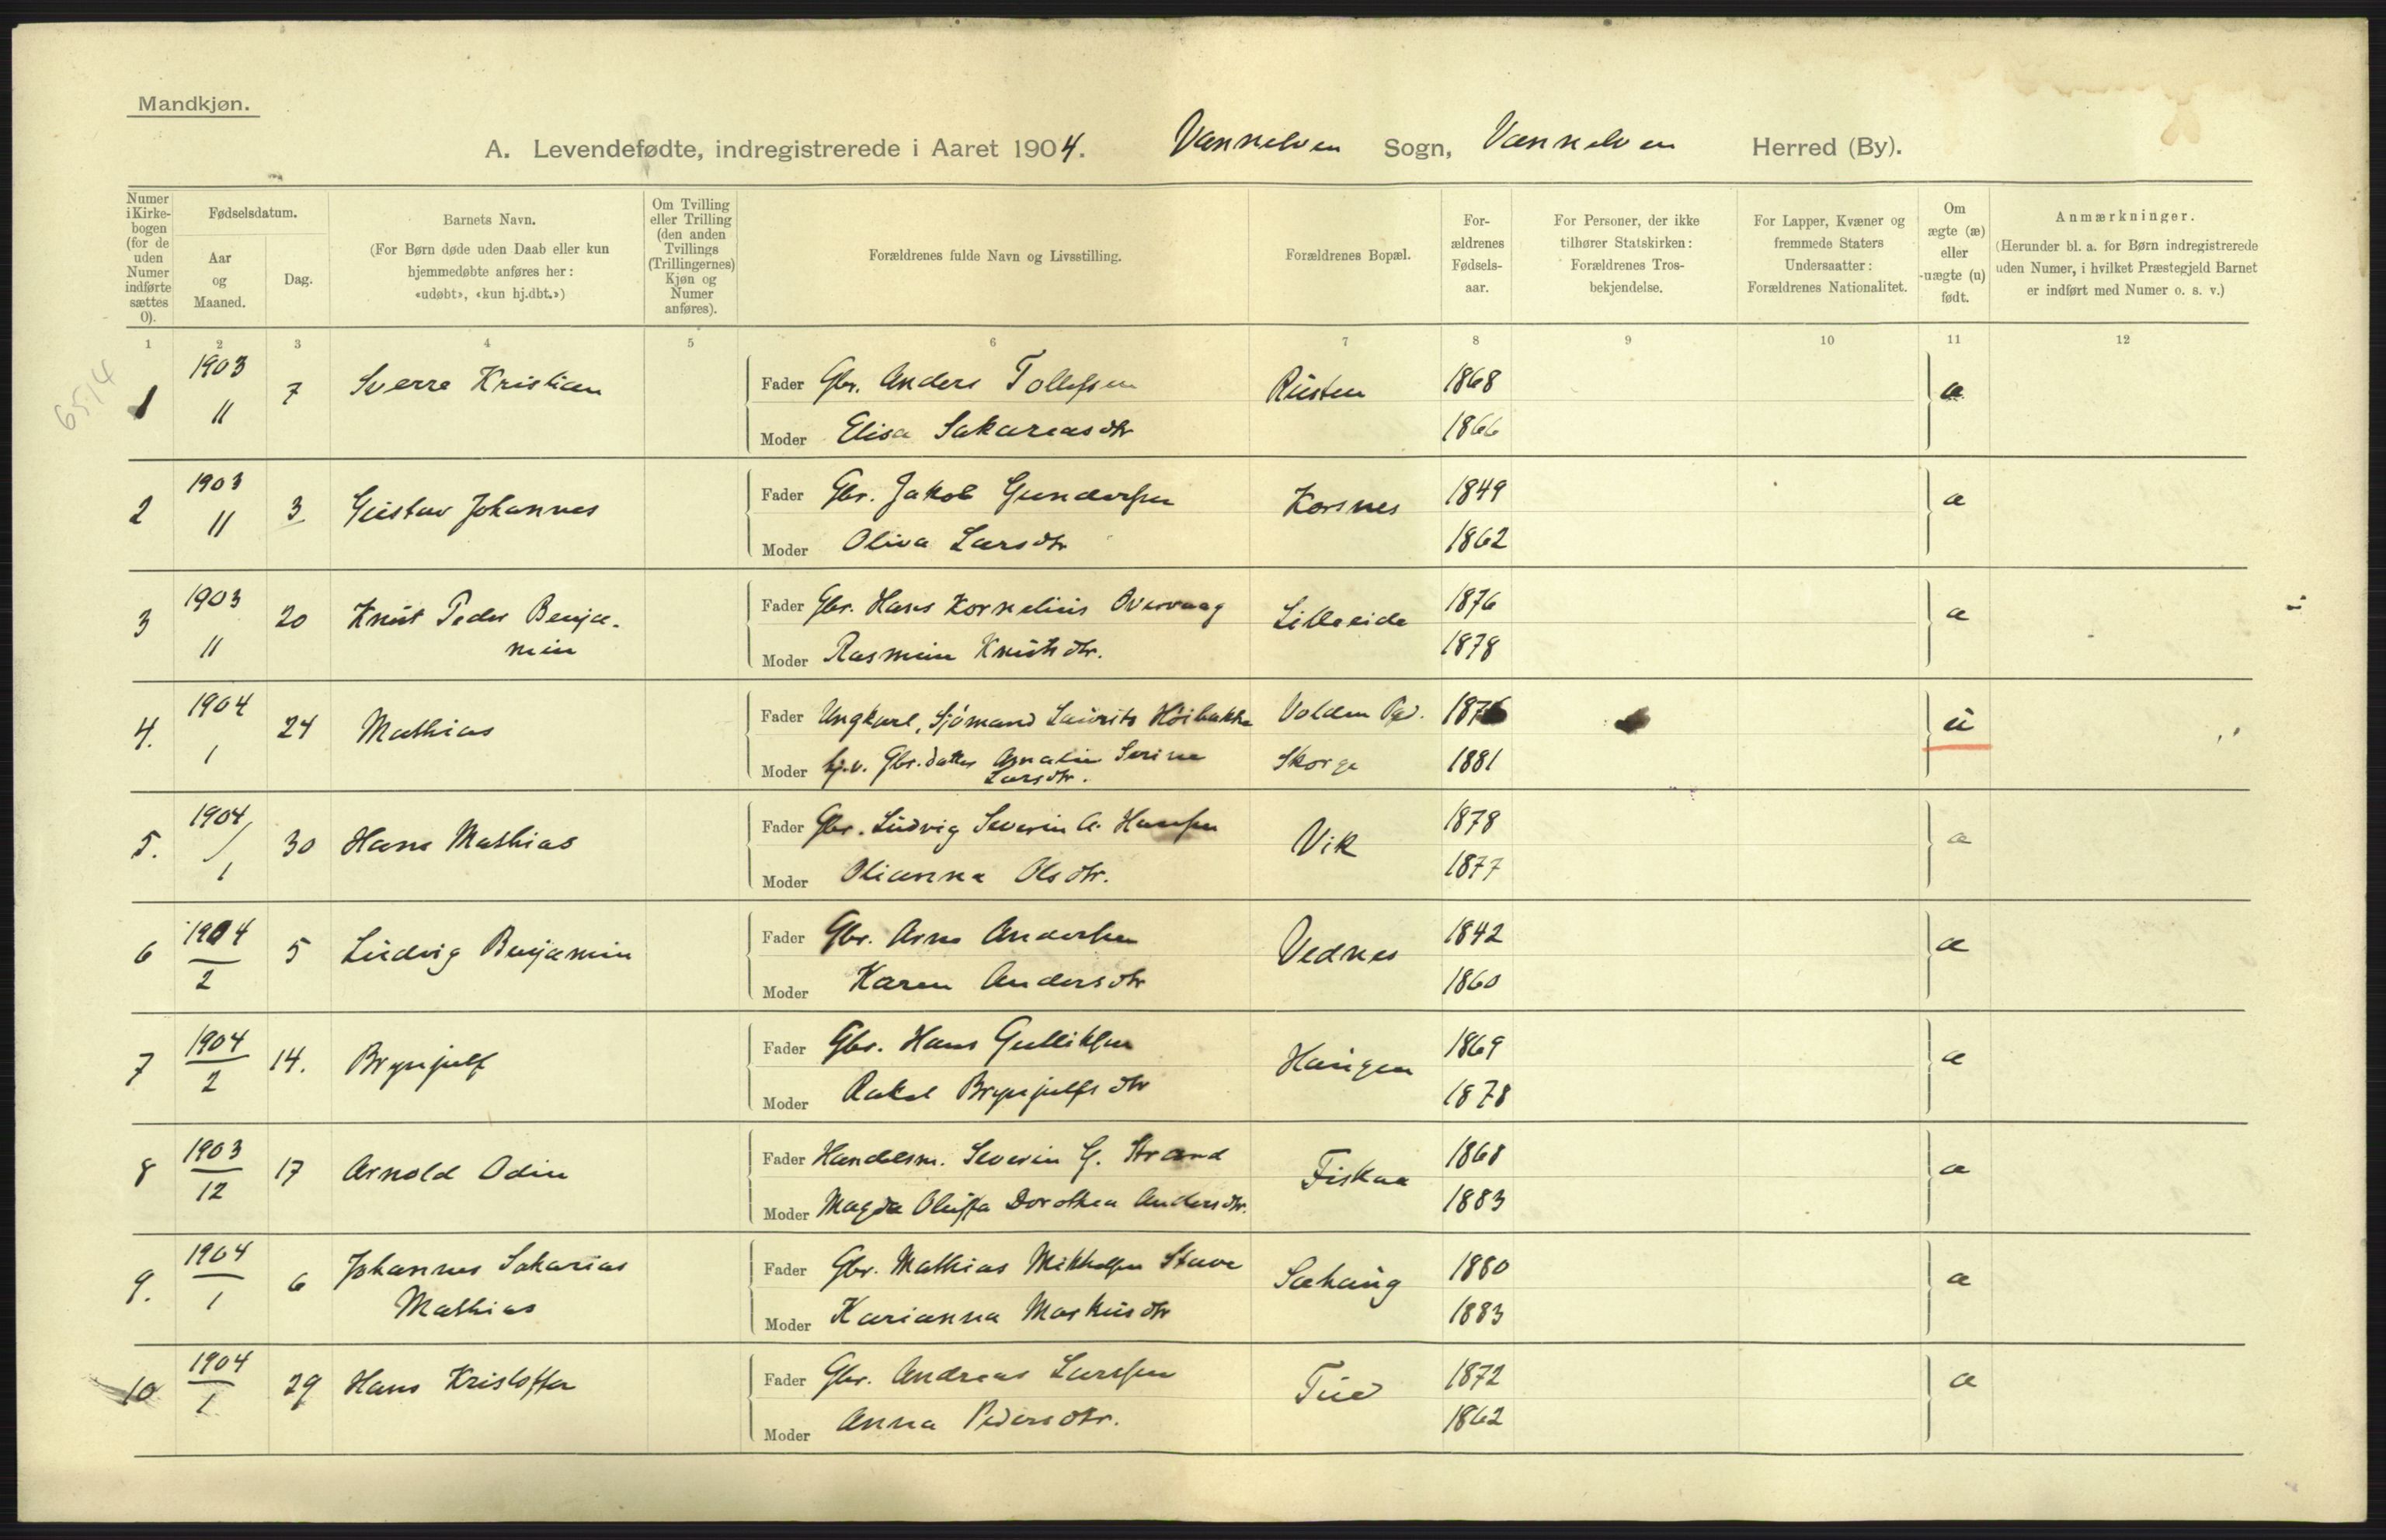 Mandkjøn.
A. Levendefødte, indregistrerede i Aaret 1904. Vannelven Sogn, Vannelven Herred (By).
Numer i Kirkebogen (for de uden Numer indførte sættes 0).
Fødselsdatum.
Aar og Maaned.
Dag.
Barnets Navn.
(For Børn døde uden Daab eller kun hjemmedøbte anføres her: «udøbt», «kun hj.dbt.»)
Om Tvilling eller Trilling (den anden Tvillings (Trillingernes) Kjøn og Numer anføres).
Forældrenes fulde Navn og Livsstilling.
Forældrenes Bopæl.
Forældrenes Fødselsaar.
For Personer, der ikke tilhører Statskirken: Forældrenes Trosbekjendelse.
For Lapper, Kvæner og fremmede Staters Undersaatter: Forældrenes Nationalitet.
Om ægte (æ) eller uægte (u) født.
Anmærkninger.
(Herunder bl. a. for Børn indregistrerede uden Numer, i hvilket Præstegjeld Barnet er indført med Numer o. s. v.)
1 2 3 4 5 6 7 8 9 10 11 12
6514
1 1903 11 7 Sverre Kristian Fader Gbr. Anders Tollefsen Rusten 1868 æ
Moder Elisa Sakariasdtr 1866
2 1903 11 3 Gustav Johannes Fader Gbr. Jakob Gundersen Korsnes 1849 æ
Moder Oliva Larsdtr 1862
3 1903 11 20 Knut Peder Benja-
min Fader Gbr. Hans Kornelius Overvaag Lilleeide 1876 æ
Moder Rasmine Knutsdtr. 1878
4. 1904 1 24 Mathias Fader Ungkarl, Sjømand Laurits Høibakke Volden Pgd. 1876 u
Moder hj.v. Gbr.datter Amalie Serine
Larsdtr. Skorge 1881
5. 1904 / 1 30 Hans Mathias Fader Gbr. Ludvig Severin A. Hansen Vik 1878 æ
Moder Olianna Olsdtr. 1877
6 1904 2 5 Ludvig Benjamin Fader Gbr. Arne Andersen Vednes 1842 æ
Moder Karen Andersdtr 1860
7 1904 2 14. Brynjulf Fader Gbr. Hans Gulliksen Haugen 1869 æ
Moder Rakel Brynjulfsdtr 1878
8 1903 12 17 Arnold Odin Fader Handelsm. Severin G. Strand Fiskaa 1868 æ
Moder Magda Oluffa Dorothea Andersdtr. 1883
9. 1904 1 6 Johannes Sakarias
Mathias Fader Gbr. Mathias Mikkelsen Stave Sæhaug 1880 æ
Moder Karianna Markusdtr 1883
10 1904 1 29 Hans Kristoffer Fader Gbr. Andreas Larssen Tue 1872 æ
Moder Anna Pedersdtr. 1862